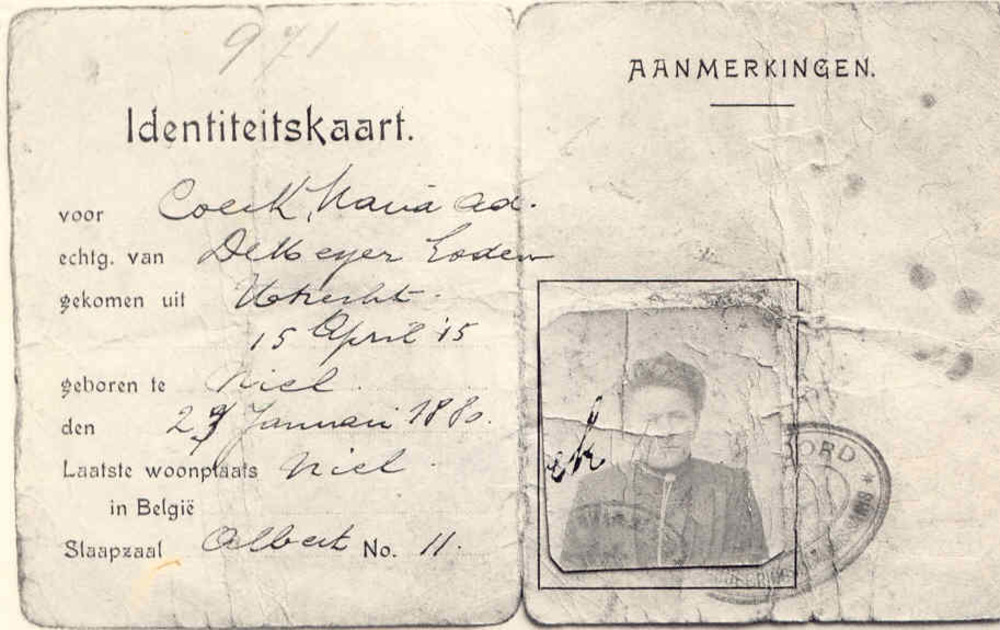 971
Identiteitskaart.
voor Coeck, Maria Ad.
echtg. van DeMeyer
gekomen uit Utrecht.
15 April '15
geboren te Niel.
den 27 Januari 1880.
Laatste woonplaats Niel.
in België
Slaapzaal Albert No. 11.
AANMERKINGEN.